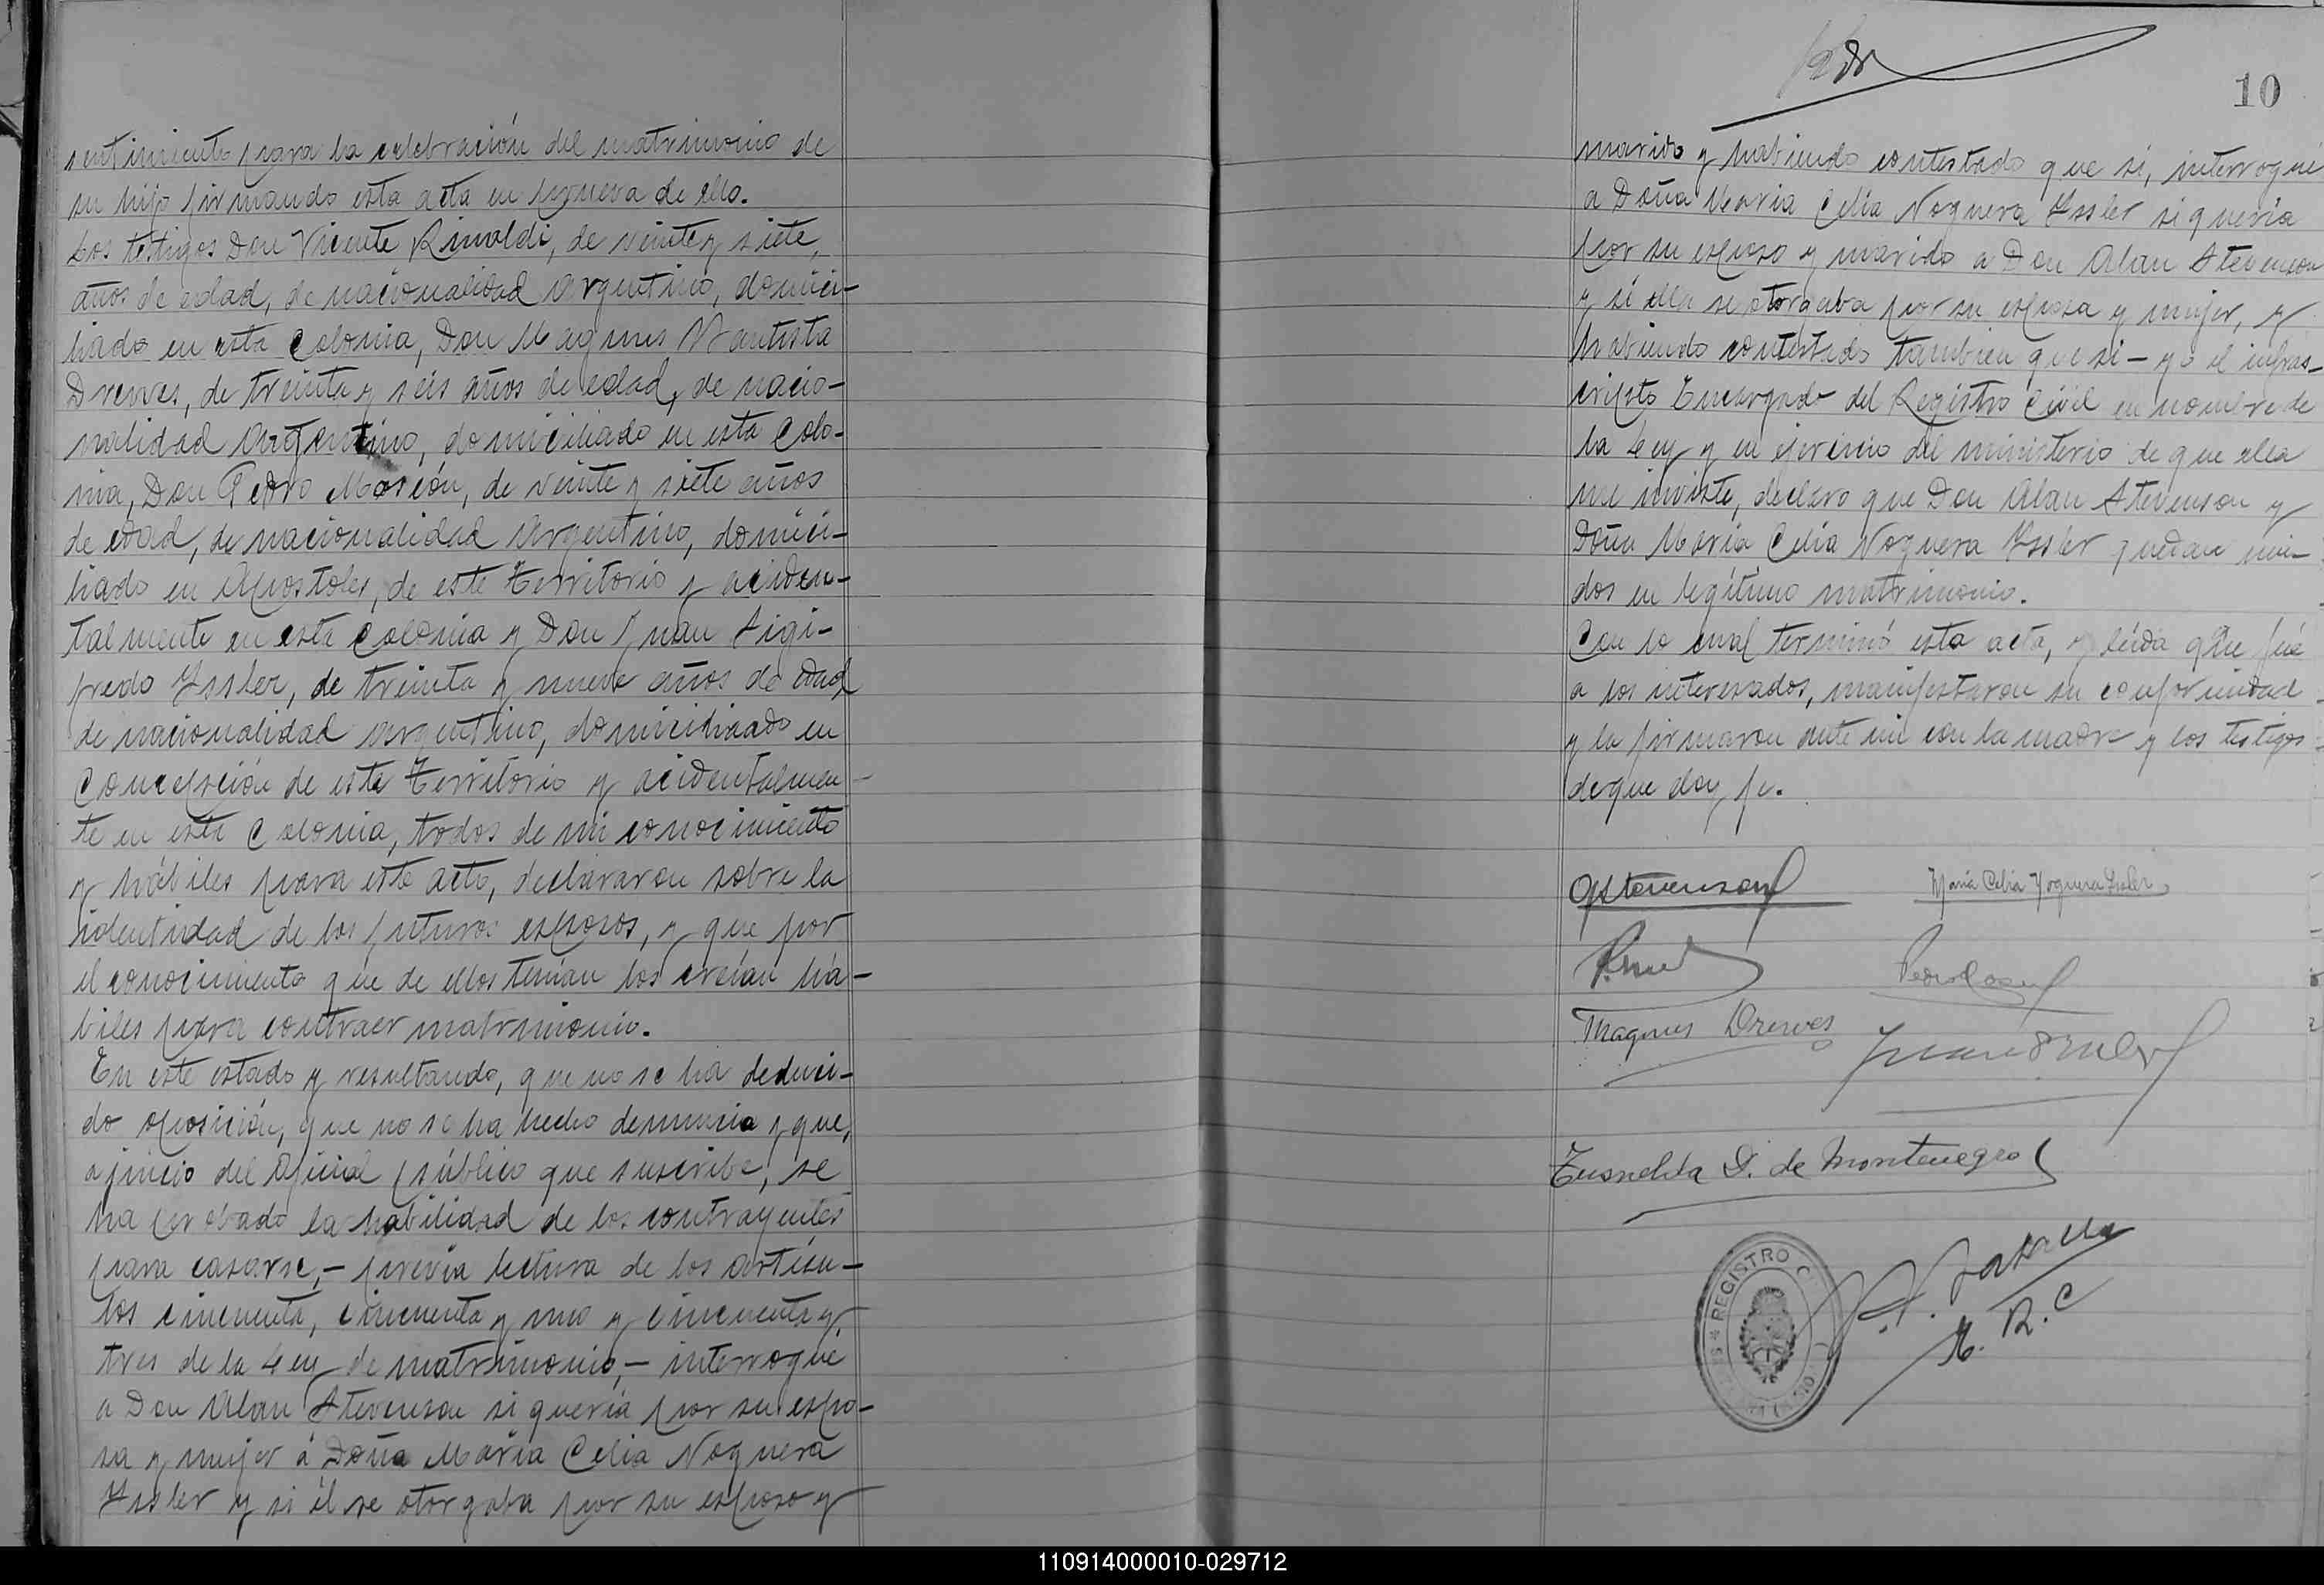 sentimiento para la celebración del matrimonio de
su hijo firmando esta acta en prueva de ello.
Los testigos Don Vicente Rinaldi, de veinte y siete,
años de edad, de nacionalidad Argentino, domici-
liado en esta Colonia, Don Magnus Bautista
Drewes, de treinta y seis años de edad, de nacio-
nalidad Argentino, domiciliado en esta Colo-
nia, Don Pedro de veinte y siete años
de edad, de nacionalidad Argentino, domici-
liado en Apostoles, de este Territorio y aciden-
talmente en esta Colonia y Don Juan Sigi-
fredo Yssler, de treinta y nueve años de edad,
de nacionalidad Argentino, domiciliado en
Concepción de este Territorio y acidentalmen-
te en esta Colonia, todos de mi conocimiento
y hábiles para este acto, declararon sobre la
identidad de los futuros esposos, y que por
el conocimiento que de ellos tenían los creían há-
biles para contraer matrimonio.
En este estado y resultando, que no se ha deduci-
do oposición, que no se ha hecho denuncia y que,
a juicio del Oficial público que suscribe, se
ha probado la habilidad de los contrayentes
para casarse,- previa lectura de los artícu-
los cincuenta, cincuenta y uno y cincuenta y
tres de la Ley de matrimonio,- interrogue
a Don Alan Stevenson si quería por su espo-
sa y mujer á Doña María Celia Noguera
Yssler y si él se otorgaba por su esposo y
10
marido y habiendo contestado que si, interrogué
a Doña Maria Celia Noguera Yssler si queria
por su esposo y marido a Don Alan Stevenson
y si ella se otorgaba por su esposa y mujer, y
habiendo contestado tambien que si - yo el infras-
cripto Encargado del Registro Civil en nombre de
la Ley y en ejercicio del ministerio de que ella
me inviste, declaro que Don Alan Stevenson y
Doña María Celia Noguera Yssler quedan uni-
dos en legítimo matrimonio.
Con lo cual terminó esta acta, y leída que fué
a los interesados, manifestaron su conformidad
y la firmaron ante mi con la madre y los testigos
de que doy fe.
AStevenson
María Celia Noguera Yssler
Magnus Drewes
Tusnelda D. de Montenegro
REGISTRO
E. R. C
110914000010-029712